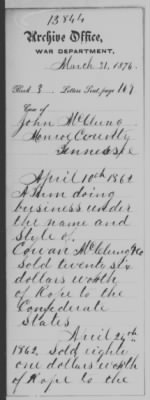 13844
Archive Office,
WAR DEPARTMENT,
March 31, 1876.
Book 3 Letters Sent, page 167
Case of
John McClung
Monroe County
Tennessee
April 10th 1862
A Firm doing
business under
the name and
Style of
Cowan McClung & Co
Sold twenty six
dollars worth
of Rope to the
Confederate
States
April 24th
1862. Sold eighty
one dollars worth
of Rope to the